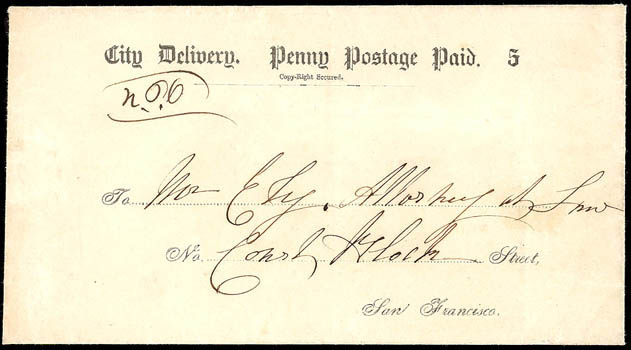 City Delivery. Penny Postage Paid. 5
Copy-Right Secured.
To Mr Ely, Attorney at Law
No. Court Block Street,
San Francisco.